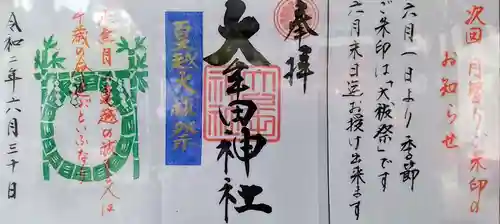 次回 月替り御朱印の
お知らせ
六月一日より 季節
ご朱印は「大祓祭」です
六月末日迄お授け出来ます
奉拝
大牟田神社
夏越大祓祭
水無月の夏越の祓する人は
千歳の命延ぶといふなり
令和二年六月三十日